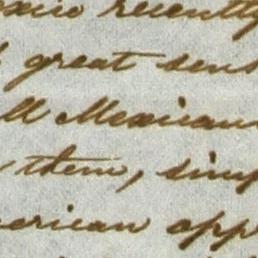 recently
great
Mexican
them, simp
erican opp